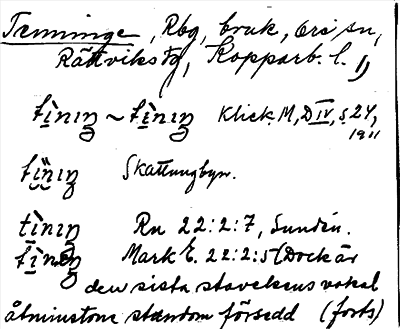 Tenninge, Rbg, bruk, Ore sn,
Rättviks tg, Kopparb. l. 1)
tìnıŋ ~ tìnıŋ Klick. M, D IV, s 24,
1911
tïnıŋ Skattungbyn.
tìnıŋ Rn 22:2:7, Sundén.
tìnıŋ Mark E. 22:2:5 (Dock är
den sista stavelsens vokal
åtminstone stundom försedd (forts)